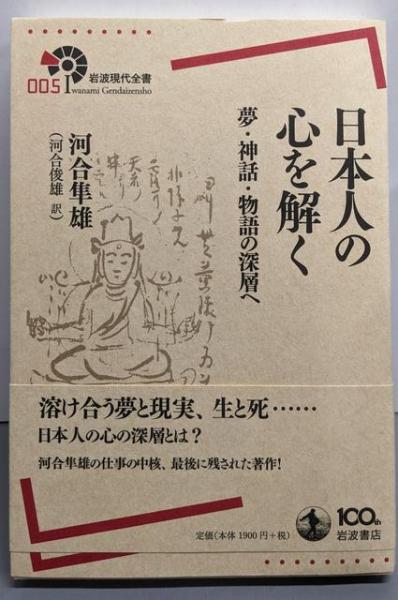 005 岩波現代全書
Iwanami Gendaizensho
日本人の
心を解く
夢・神話・物語の深層へ
河合隼雄
(河合俊雄 訳)
溶け合う夢と現実、生と死……
日本人の心の深層とは?
河合隼雄の仕事の中核、最後に残された著作!
定価(本体 1900円+税)
100th
岩波書店